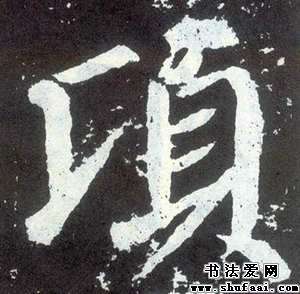 項
书法爱网
www.shufaai.com